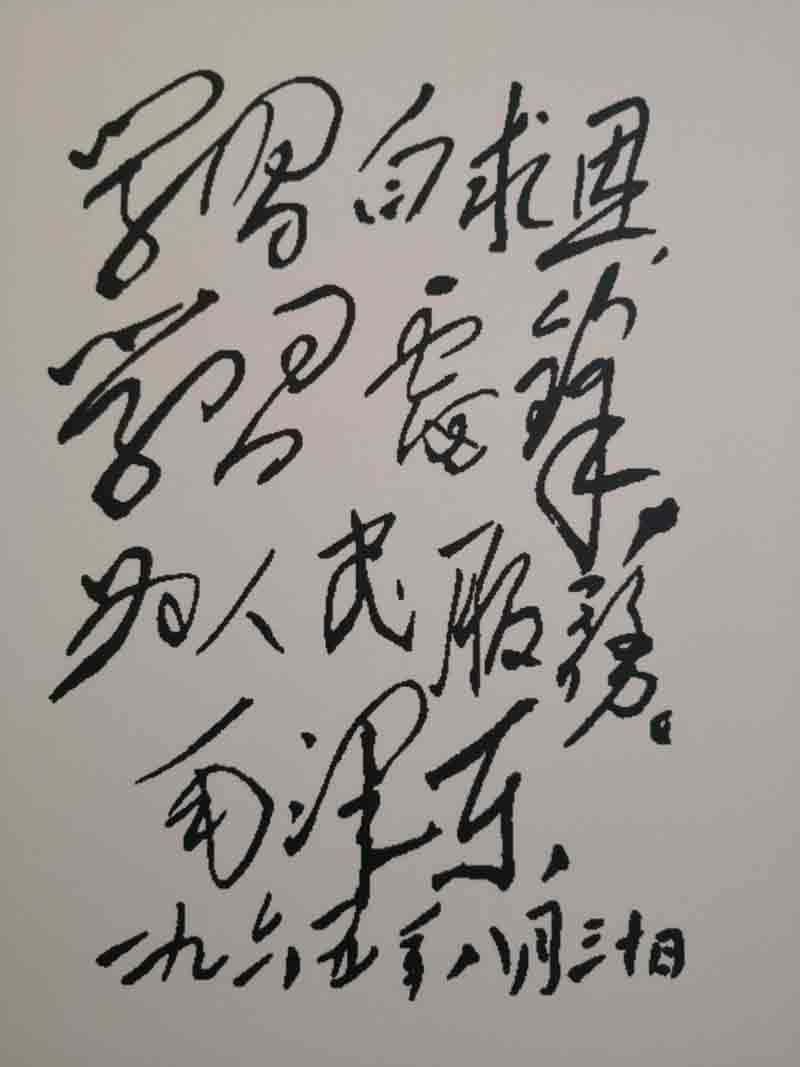 学習白求恩,
学習雷鋒,
为人民服務。
毛泽东
一九六五年八月三十日